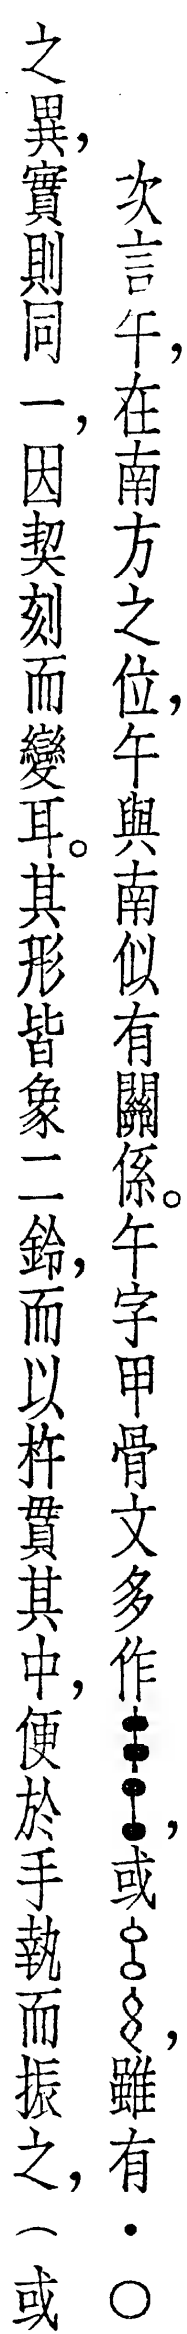 次言午，在南方之位，午與南似有關係。午字甲骨文多作，或，雖有・○
之異，實則同一，因契刻而變耳。其形皆象二鈴，而以杵貫其中，便於手執而振之，（或